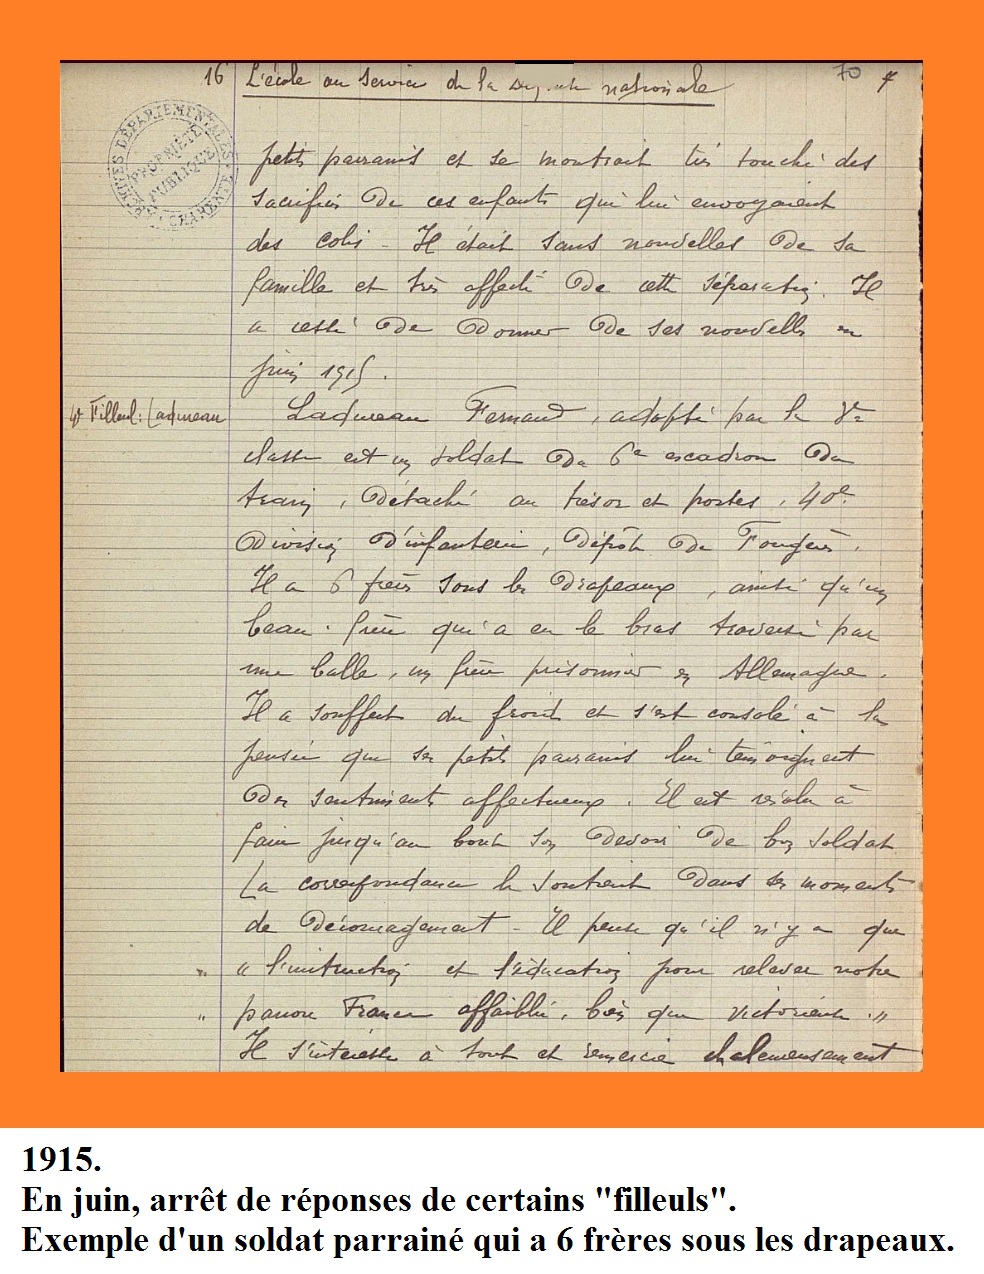 16 L'école au service de la défense nationale 70
ARCHIVES DÉPARTEMENTALES CHARENTE
PROPRIÉTÉ PUBLIQUE
petits parrains et se montrait très touché des
sacrifices de ces enfants qui lui envoyaient
des colis - Il était sans nouvelles de sa
famille et très affecté de cette séparation. Il
a cessé de donner de ses nouvelles en
juin 1915.
4e Filleul : Ladureau
Ladureau Fernand, adopté par la
classe est un soldat du 6e escadron du
train, détaché au trésor et postes, 40e
Division d'infanterie, dépôt de Fougères.
Il a 6 frères sous les drapeaux, ainsi qu'un
beau-frère qui a eu le bras traversé par
une balle, un frère prisonnier en Allemagne.
Il a souffert du froid et s'est consolé à la
pensée que ses petits parrains lui témoignent
des sentiments affectueux. Il est résolu à
faire jusqu'au bout son devoir de bon soldat
La correspondance le soutient dans ses moments
de découragement - Il pense qu'il n'y a que
" « l'instruction et l'éducation pour relever notre
" pauvre France affaiblie, bien que victorieuse. »
Il s'intéresse à tout et remercie chaleureusement
1915.
En juin, arrêt de réponses de certains "filleuls".
Exemple d'un soldat parrainé qui a 6 frères sous les drapeaux.